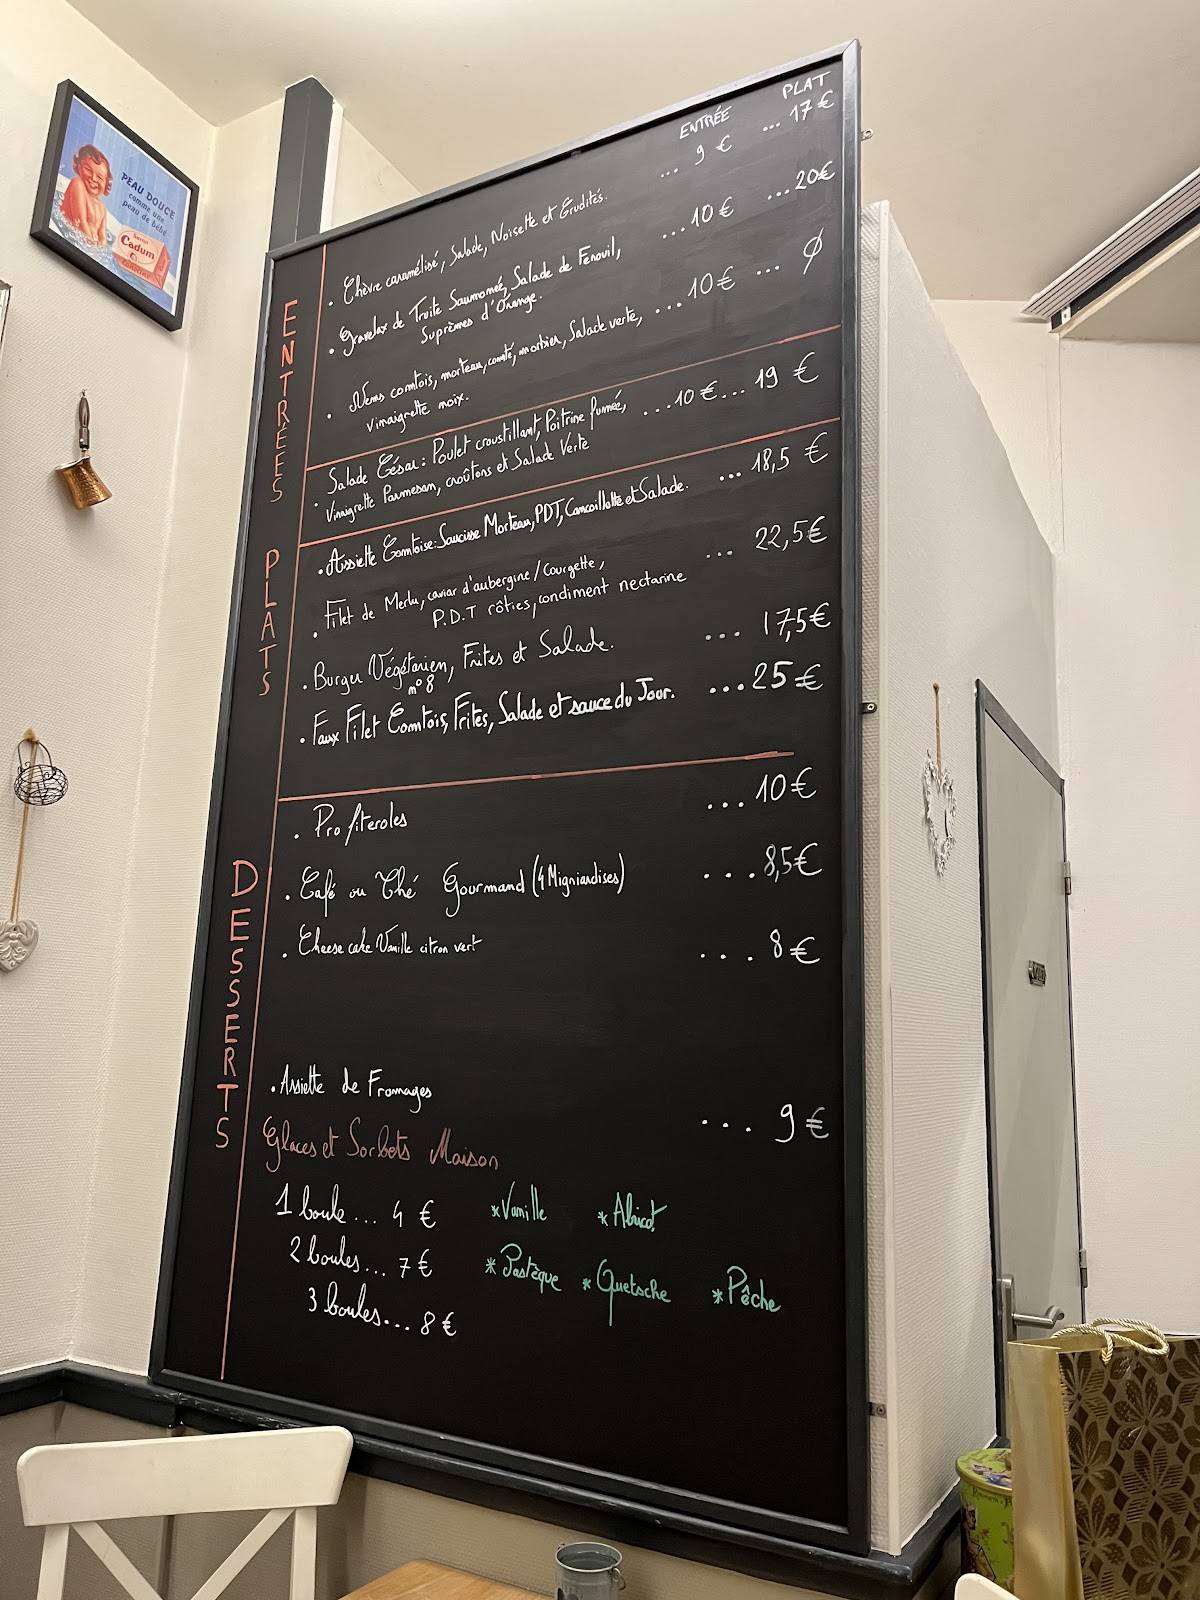 PEAU DOUCE
comme une
peau de bébé
Savon
Cadum
ENTRÉE
PLAT
ENTREES
. Chèvre caramélisé, Salade, Noisette et Crudités. ... 9 € ... 17 €
. Gravelax de Truite Saumonée, Salade de Fenouil, ...10 € ...20€
Suprêmes d'Orange.
. Nems comtois, morteau, comté, morbier, Salade verte, ...10 € ... Ø
vinaigrette noix.
. Salade César : Poulet croustillant, Poitrine fumée, ...10 €... 19 €
Vinaigrette Parmesan, croûtons et Salade Verte
PLATS
. Assiette Comtoise: Saucisse Morteau, PDT, Cancoillotte et Salade. ... 18,5 €
. Filet de Merlu, caviar d'aubergine/courgette, ... 22,5€
P.D.T rôties, condiment nectarine
. Burger Végétarien, Frites et Salade. ... 17,5€
n°8
. Faux Filet Comtois, Frites, Salade et sauce du Jour. ...25 €
DESSERTS
. Profiteroles ...10€
. Café ou Thé Gourmand (4 Migniardises) ...8,5€
. Cheese cake Vanille citron vert ... 8€
. Assiette de Fromages ... 9€
Glaces et Sorbets Maison
1 boule... 4 € *Vanille *Abricot
2 boules... 7 € *Pastèque *Quetsche *Pêche
3 boules... 8 €